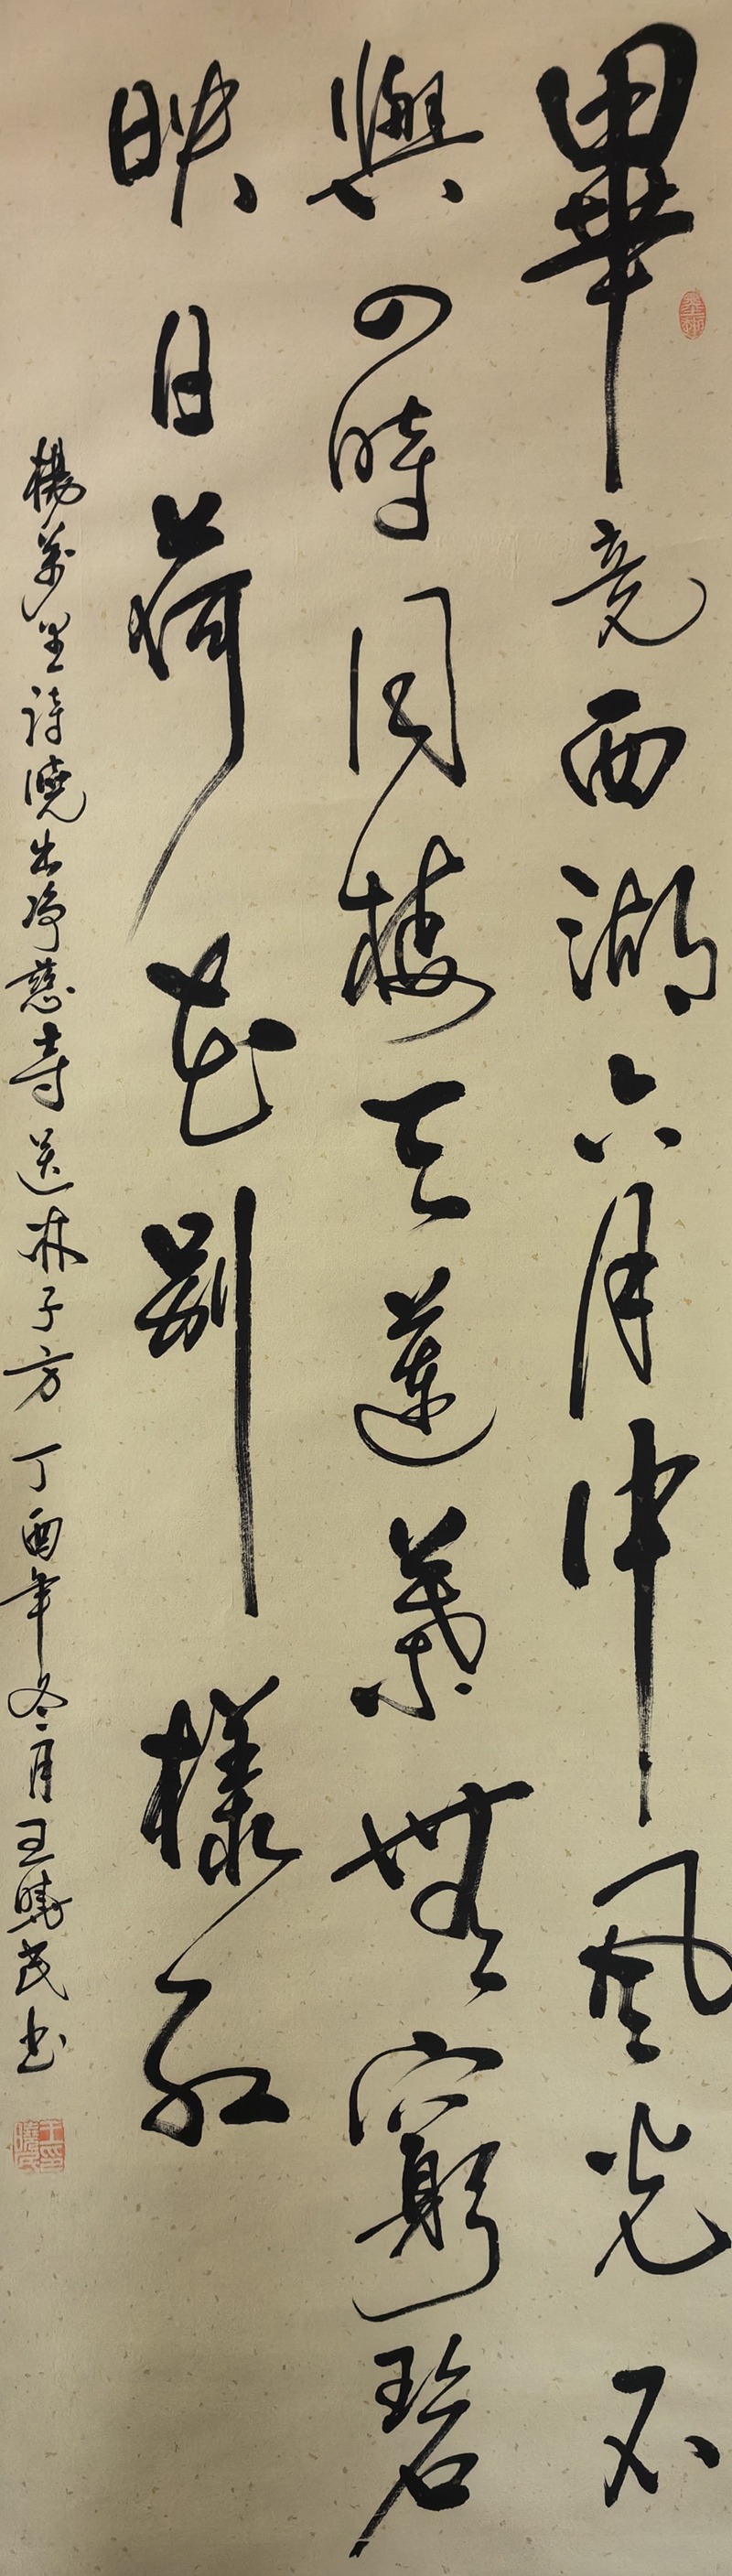 畢竟西湖六月中風光不
與四時同接天蓮葉無窮碧
映日荷花別樣紅
楊萬里詩曉出净慈寺送林子方 丁酉年冬月王曉民书
王印曉民